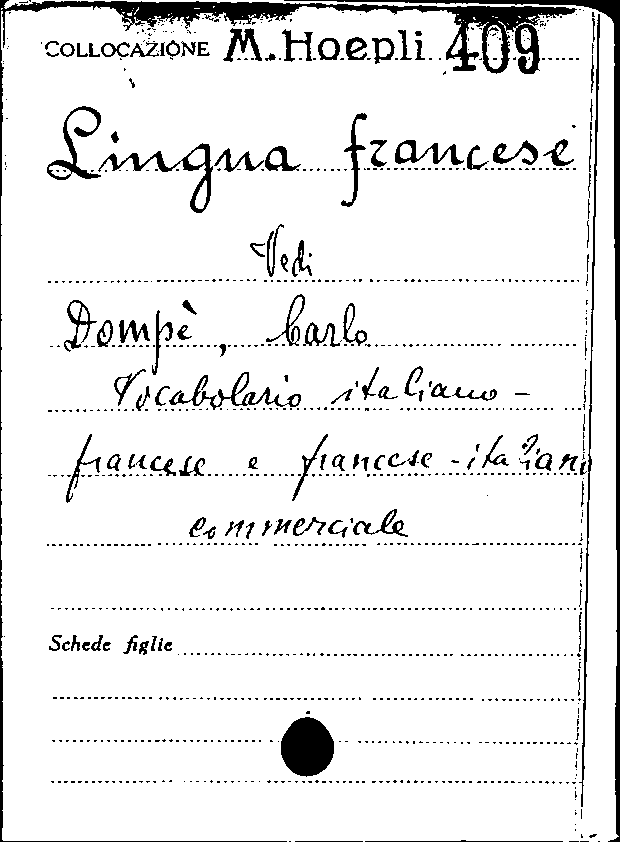 COLLOCAZIONE M. Hoepli 409
Lingua francese
Vedi
Dompè, Carlo
Vocabolario italiano-
francese e francese-italiano
commerciale
Schede figlie